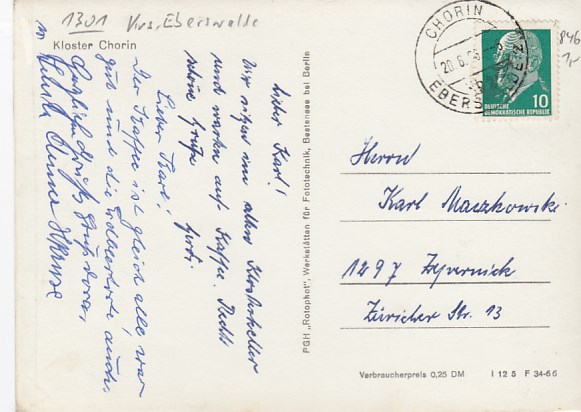 1301 Krs. Eberswalde
Kloster Chorin
Lieber Karl!
Wir sitzen im alten Klosterkeller
und warten auf Kaffee. Recht
schöne Grüße
Lieber Karl!
Der Kaffee ist gleich alle, war
gut und die Erdbeertorte auch.
PGH „Rotophot", Werkstätten für Fototechnik, Bestensee bei Berlin
CHORIN
EBERSWALDE
DEUTSCHE
DEMOKRATISCHE REPUBLIK
10
846
1,-
Herrn
Karl Maczkowski
1297 Zepernick
Züricher Str. 13
Verbraucherpreis 0,25 DM I 12 5 F 34-66